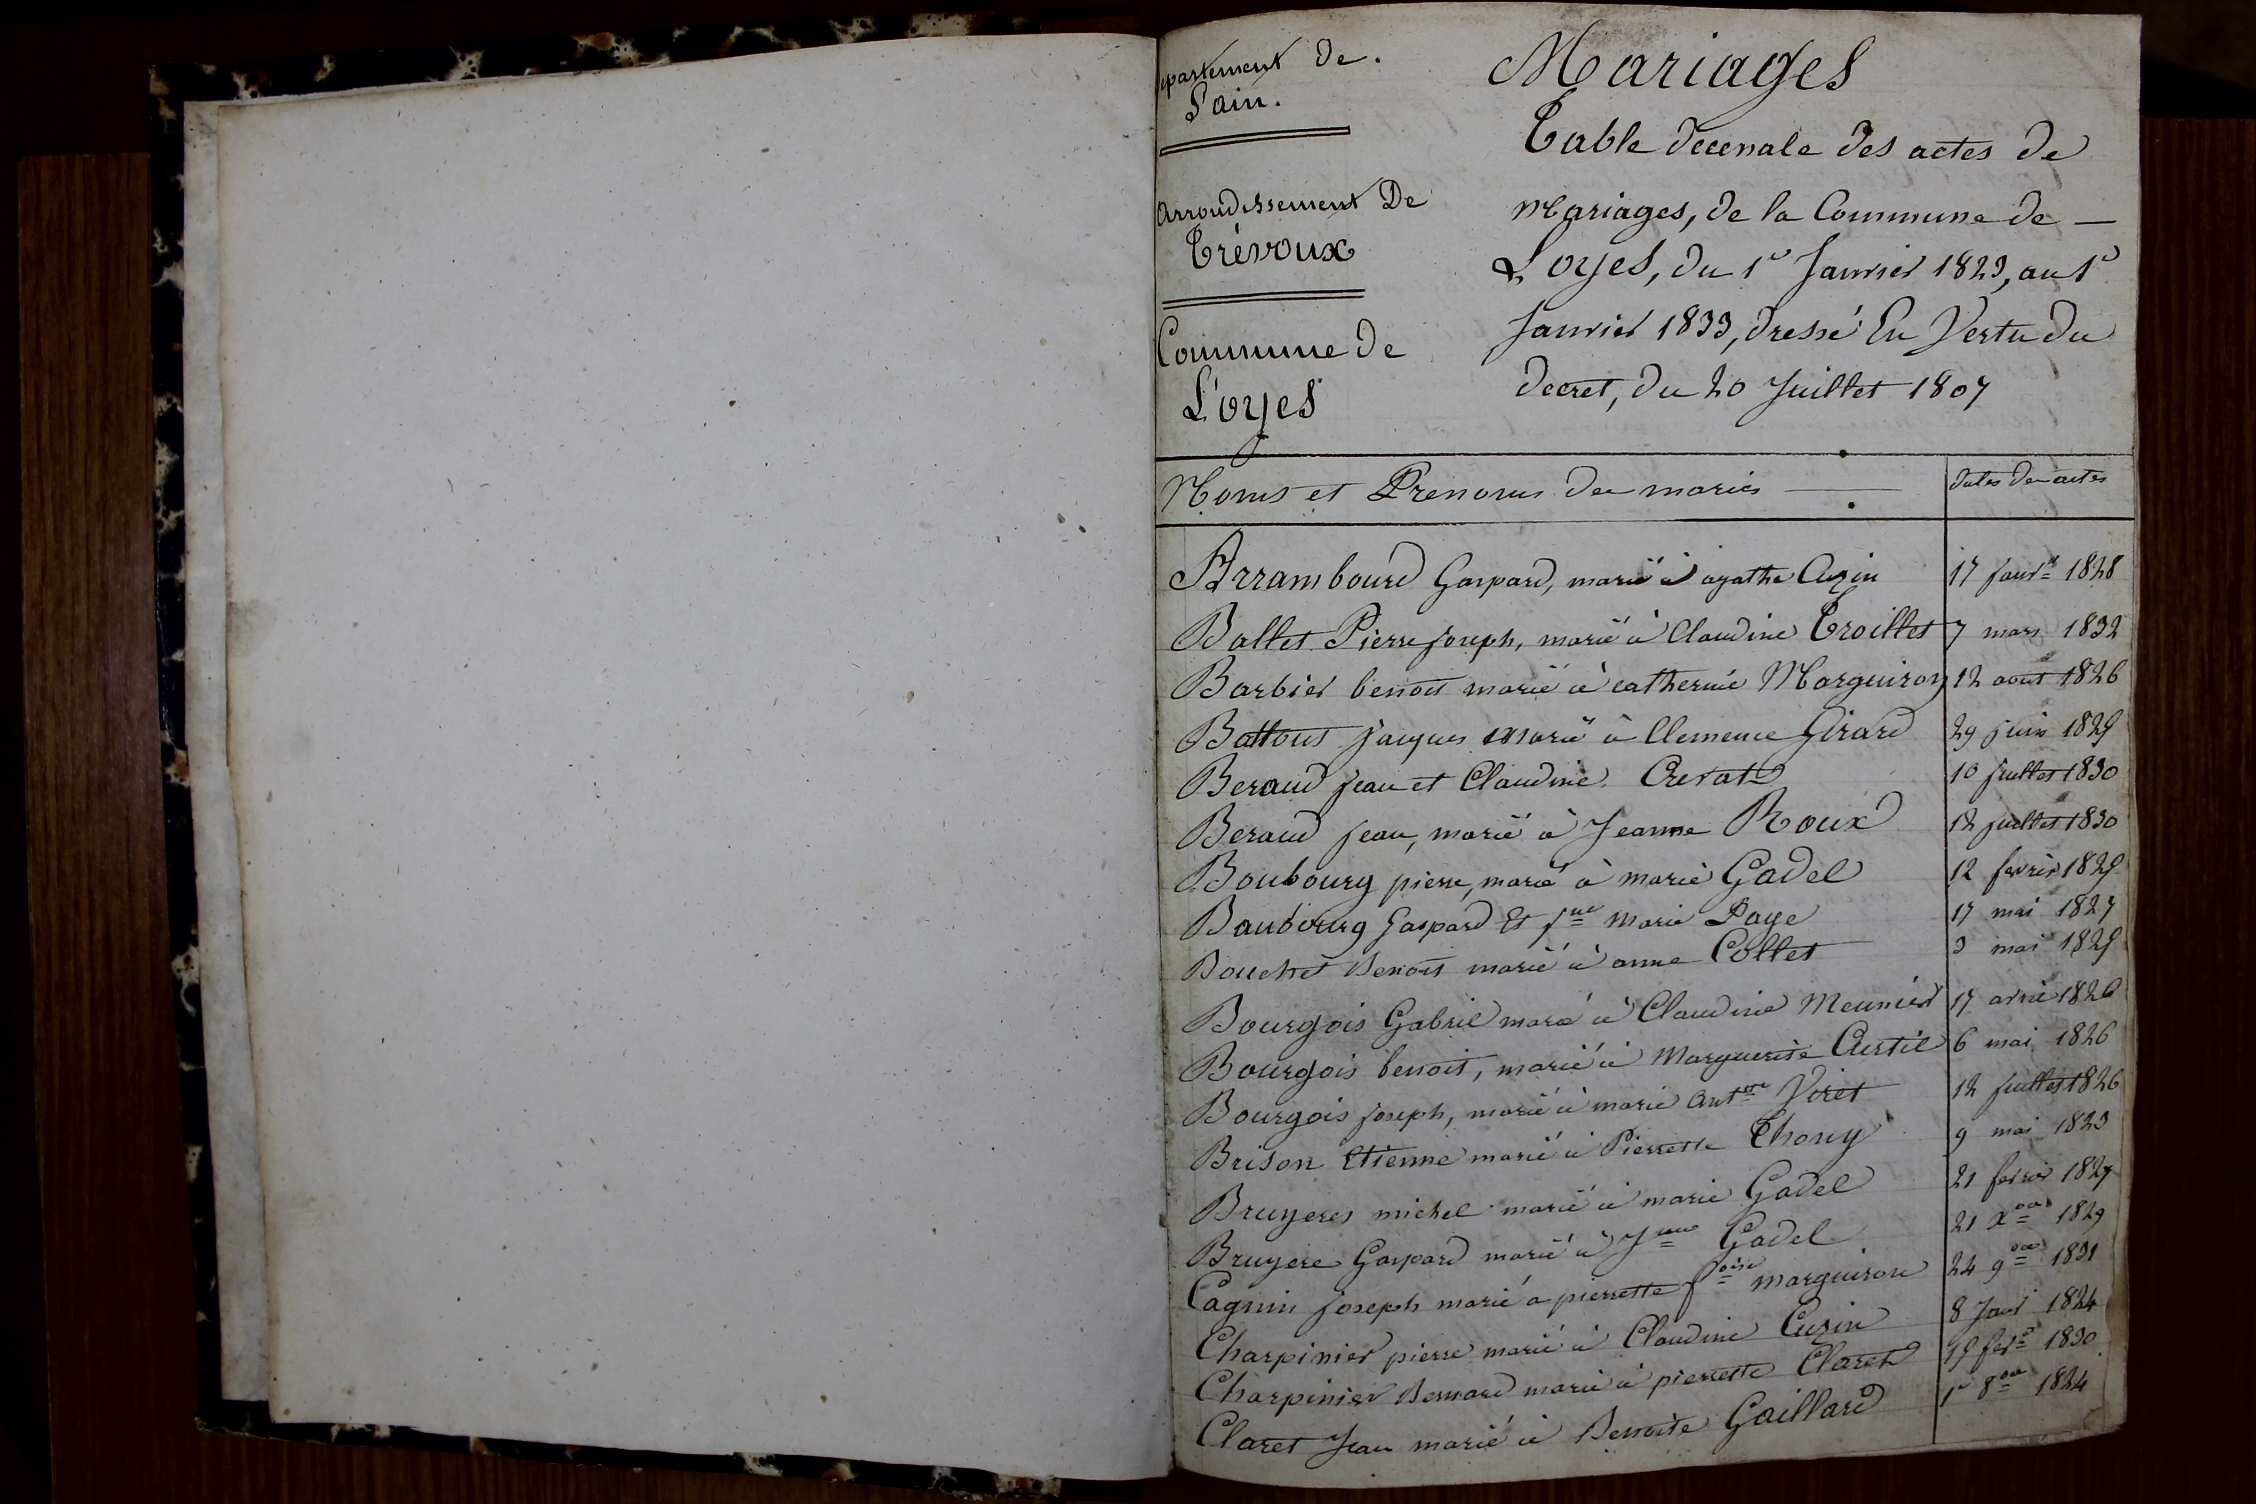 partement de.
L'ain.
Arrondissement De
Trévoux
Commune de
L'oyes
Mariages
Table decenale des actes de
mariages, de la Commune de —
Loyes, du 1er Janvier 1823, au 1er
Janvier 1833, dressé En Vertu du
decret, du 20 Juillet 1807
Noms et Prenoms des mariés — dates des actes
Arrambourd Gaspard, marié à agathe Cuzin 17 janvr 1828
Ballet Pierre joseph, marié à Claudine Troillet 7 mars 1832
Barbier benoit marié à catherine Marguiron 12 aout 1826
Battous jacques marié à Clemence Girard 29 juin 1829
Beraud jean et Claudine Cerat 10 juillet 1830
Beraud jean, marié à Jeanne Roux 12 juillet 1830
Boubourg pierre, marié à marie Gadel 12 fevrier 1829
Baubourg Gaspard Et jne Marie Page 17 mai 1827
Bouchet Benoit marié à anne Collet 3 mai 1829
Bourgois Gabriel marié à Claudine Meunier 17 avril 1826
Bourgois benoit, marié à Marguerite Curtil 6 mai 1826
Bourgois joseph, marié à marie antte Viret 12 juillet 1826
Brison Etienne marié à Pierrette Thony 9 mai 1823
Bruyeres michel marié à marie Gadel 21 fevrier 1827
Bruyere Gaspard marié à Jnne Gadel 21 Xbre 1829
Cagnin joseph marié à pierrette foise marguiron 24 9bre 1831
Charpinier pierre marié à Claudine Cuzin 8 Janvr 1824
Charpinier Bernard marié à pierrette Claret 19 fevr 1830
Claret Jean marié à Benoite Gaillard 1er 8bre 1824